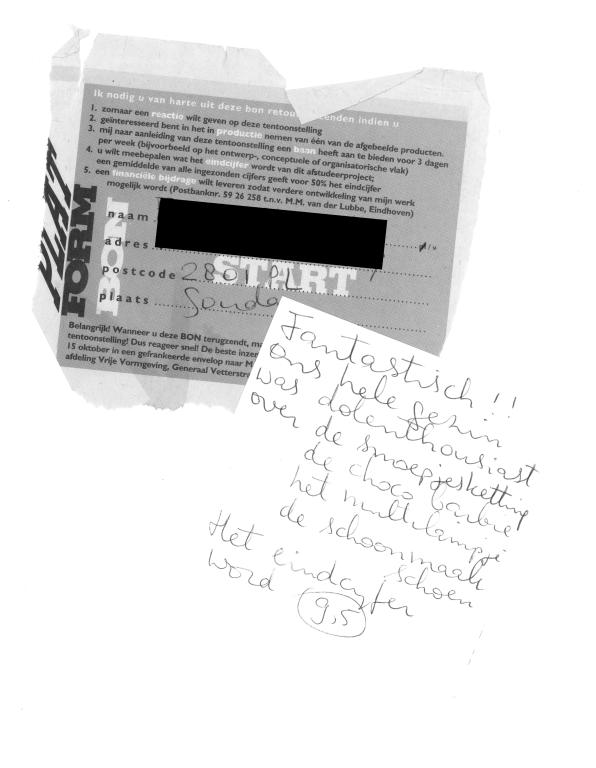 Ik nodig u van harte uit deze bon retour zenden indien u
1. zomaar een reactie wilt geven op deze tentoonstelling
2. geïnteresseerd bent in het in productie nemen van één van de afgebeelde producten.
3. mij naar aanleiding van deze tentoonstelling een baan heeft aan te bieden voor 3 dagen
per week (bijvoorbeeld op het ontwerp-, conceptuele of organisatorische vlak)
4. u wilt meebepalen wat het eindcijfer wordt van dit afstudeerproject;
een gemiddelde van alle ingezonden cijfers geeft voor 50% het eindcijfer
5. een financiële bijdrage wilt leveren zodat verdere ontwikkeling van mijn werk
mogelijk wordt (Postbanknr. 59 26 258 t.n.v. M.M. van der Lubbe, Eindhoven)
PLAT
FORM
BON
START
naam
adres
postcode 2801 PL
plaats Gouda
Belangrijk! Wanneer u deze BON terugzendt, ma
tentoonstelling! Dus reageer snel! De beste inzen
15 oktober in een gefrankeerde envelop naar M
afdeling Vrije Vormgeving, Generaal Vetterstr
Fantastisch!!
ons hele gezin
was dolenthousiast
over de snoepjesketting
de choco barbie
het multilampje
de schoonmaak
schoen
Het eindcyfer
word 9,5